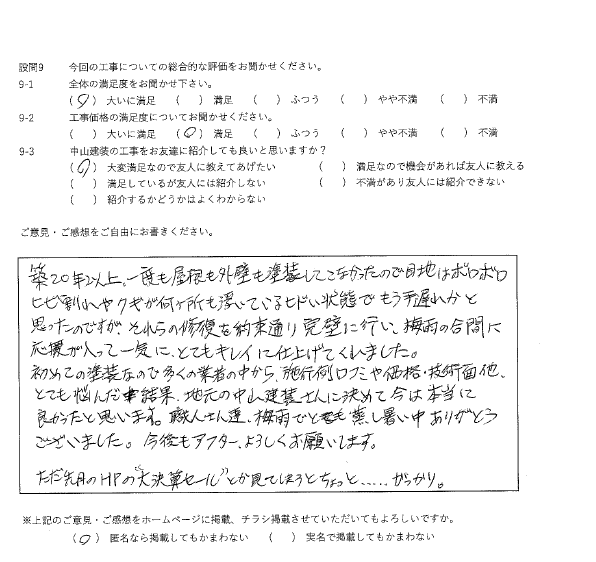 設問9　今回の工事についての総合的な評価をお聞かせください。
9-1　全体の満足度をお聞かせ下さい。
（○）大いに満足　（　）満足　（　）ふつう　（　）やや不満　（　）不満
9-2　工事価格の満足度についてお聞かせください。
（　）大いに満足　（○）満足　（　）ふつう　（　）やや不満　（　）不満
9-3　中山建装の工事をお友達に紹介しても良いと思いますか？
（○）大変満足なので友人に教えてあげたい　（　）満足なので機会があれば友人に教える
（　）満足しているが友人には紹介しない　（　）不満があり友人には紹介できない
（　）紹介するかどうかはよくわからない
ご意見・ご感想をご自由にお書きください。
築20年以上、一度も屋根も外壁も塗装してこなかったので目地はボロボロ
ヒビ割れやクギが何ヶ所も浮いているヒドい状態でもう手遅れかと
思ったのですが それらの修復を約束通り完璧に行い、梅雨の合間に
応援が入って一気に、とてもキレイに仕上げてくれました。
初めての塗装なので多くの業者の中から、施行例口コミや価格・技術面他、
とても悩んだ結果、地元の中山建装さんに決めて今は本当に
良かったと思います。職人さん達、梅雨でとても蒸し暑い中ありがとう
ございました。今後もアフター、よろしくお願いします。
ただ先月のHPの"大決算セール"とか見てしまうとちょっと……がっかり。
※上記のご意見・ご感想をホームページに掲載、チラシ掲載させていただいてもよろしいですか。
（○）匿名なら掲載してもかまわない　（　）実名で掲載してもかまわない